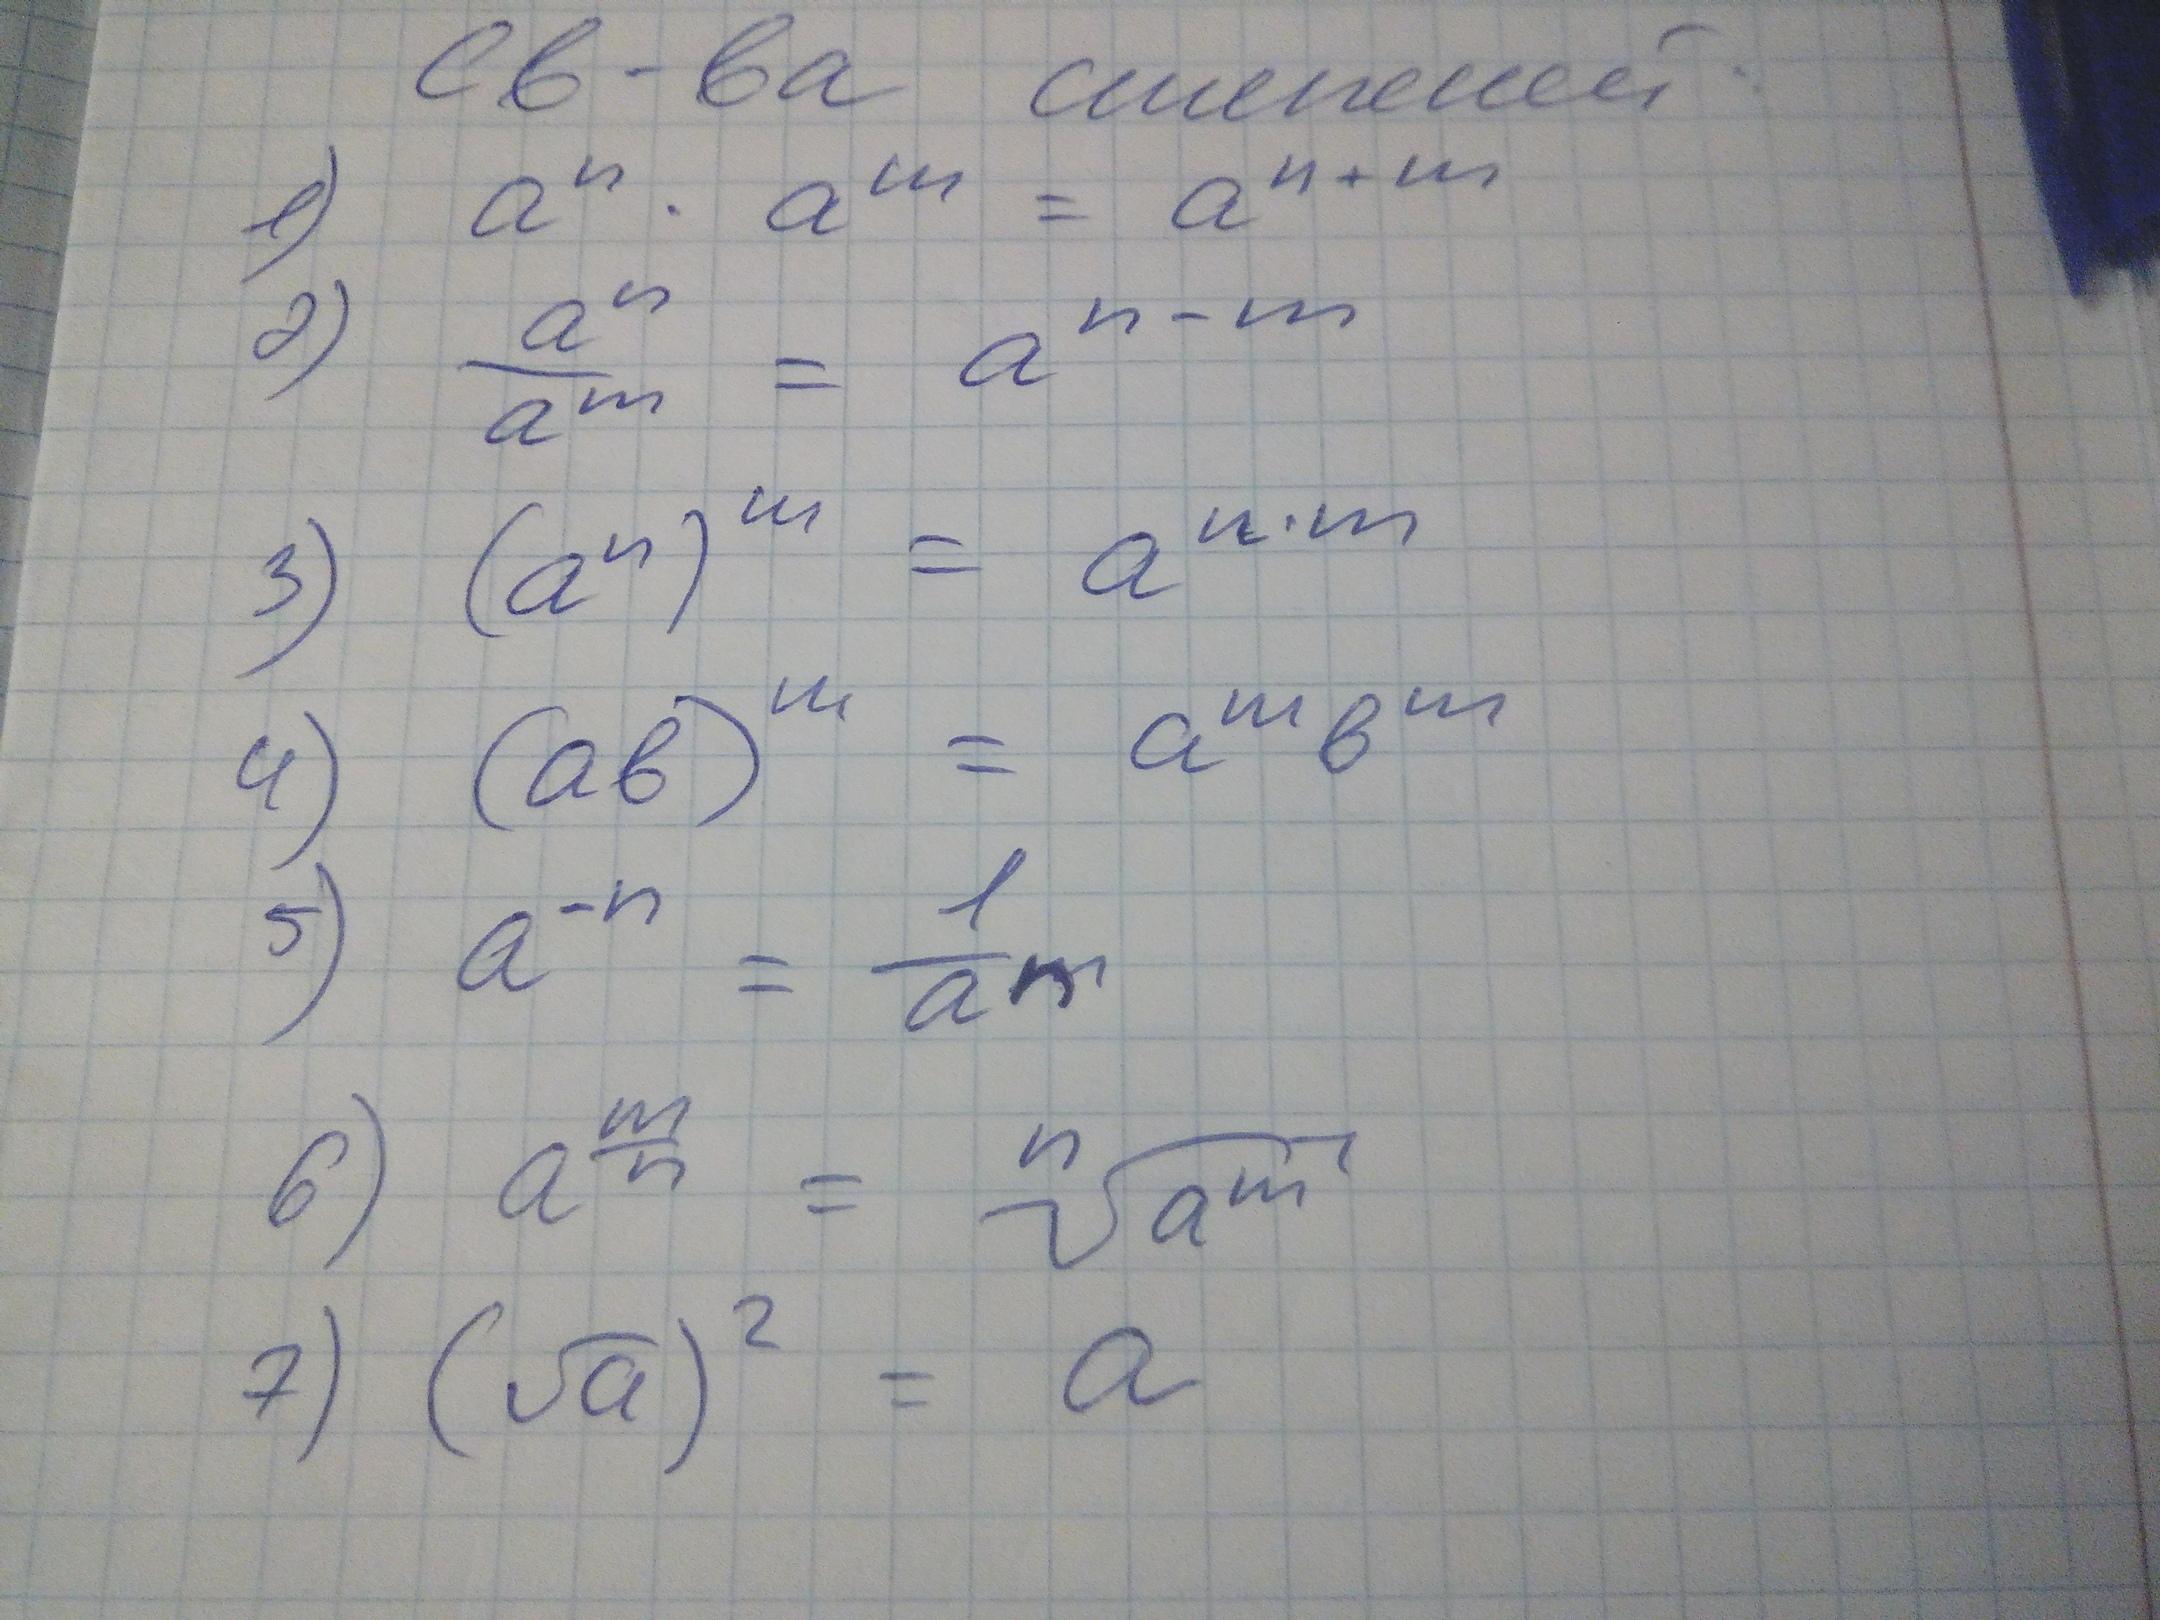 Св-ва степеней.
1) aⁿ · aᵐ = aⁿ⁺ᵐ
2) aⁿ/aᵐ = aⁿ⁻ᵐ
3) (aⁿ)ᵐ = a^(n·m)
4) (aв)ᵐ = aᵐвᵐ
5) a⁻ⁿ = 1/aⁿ
6) a^(m/n) = ⁿ√aᵐ
7) (√a)² = a